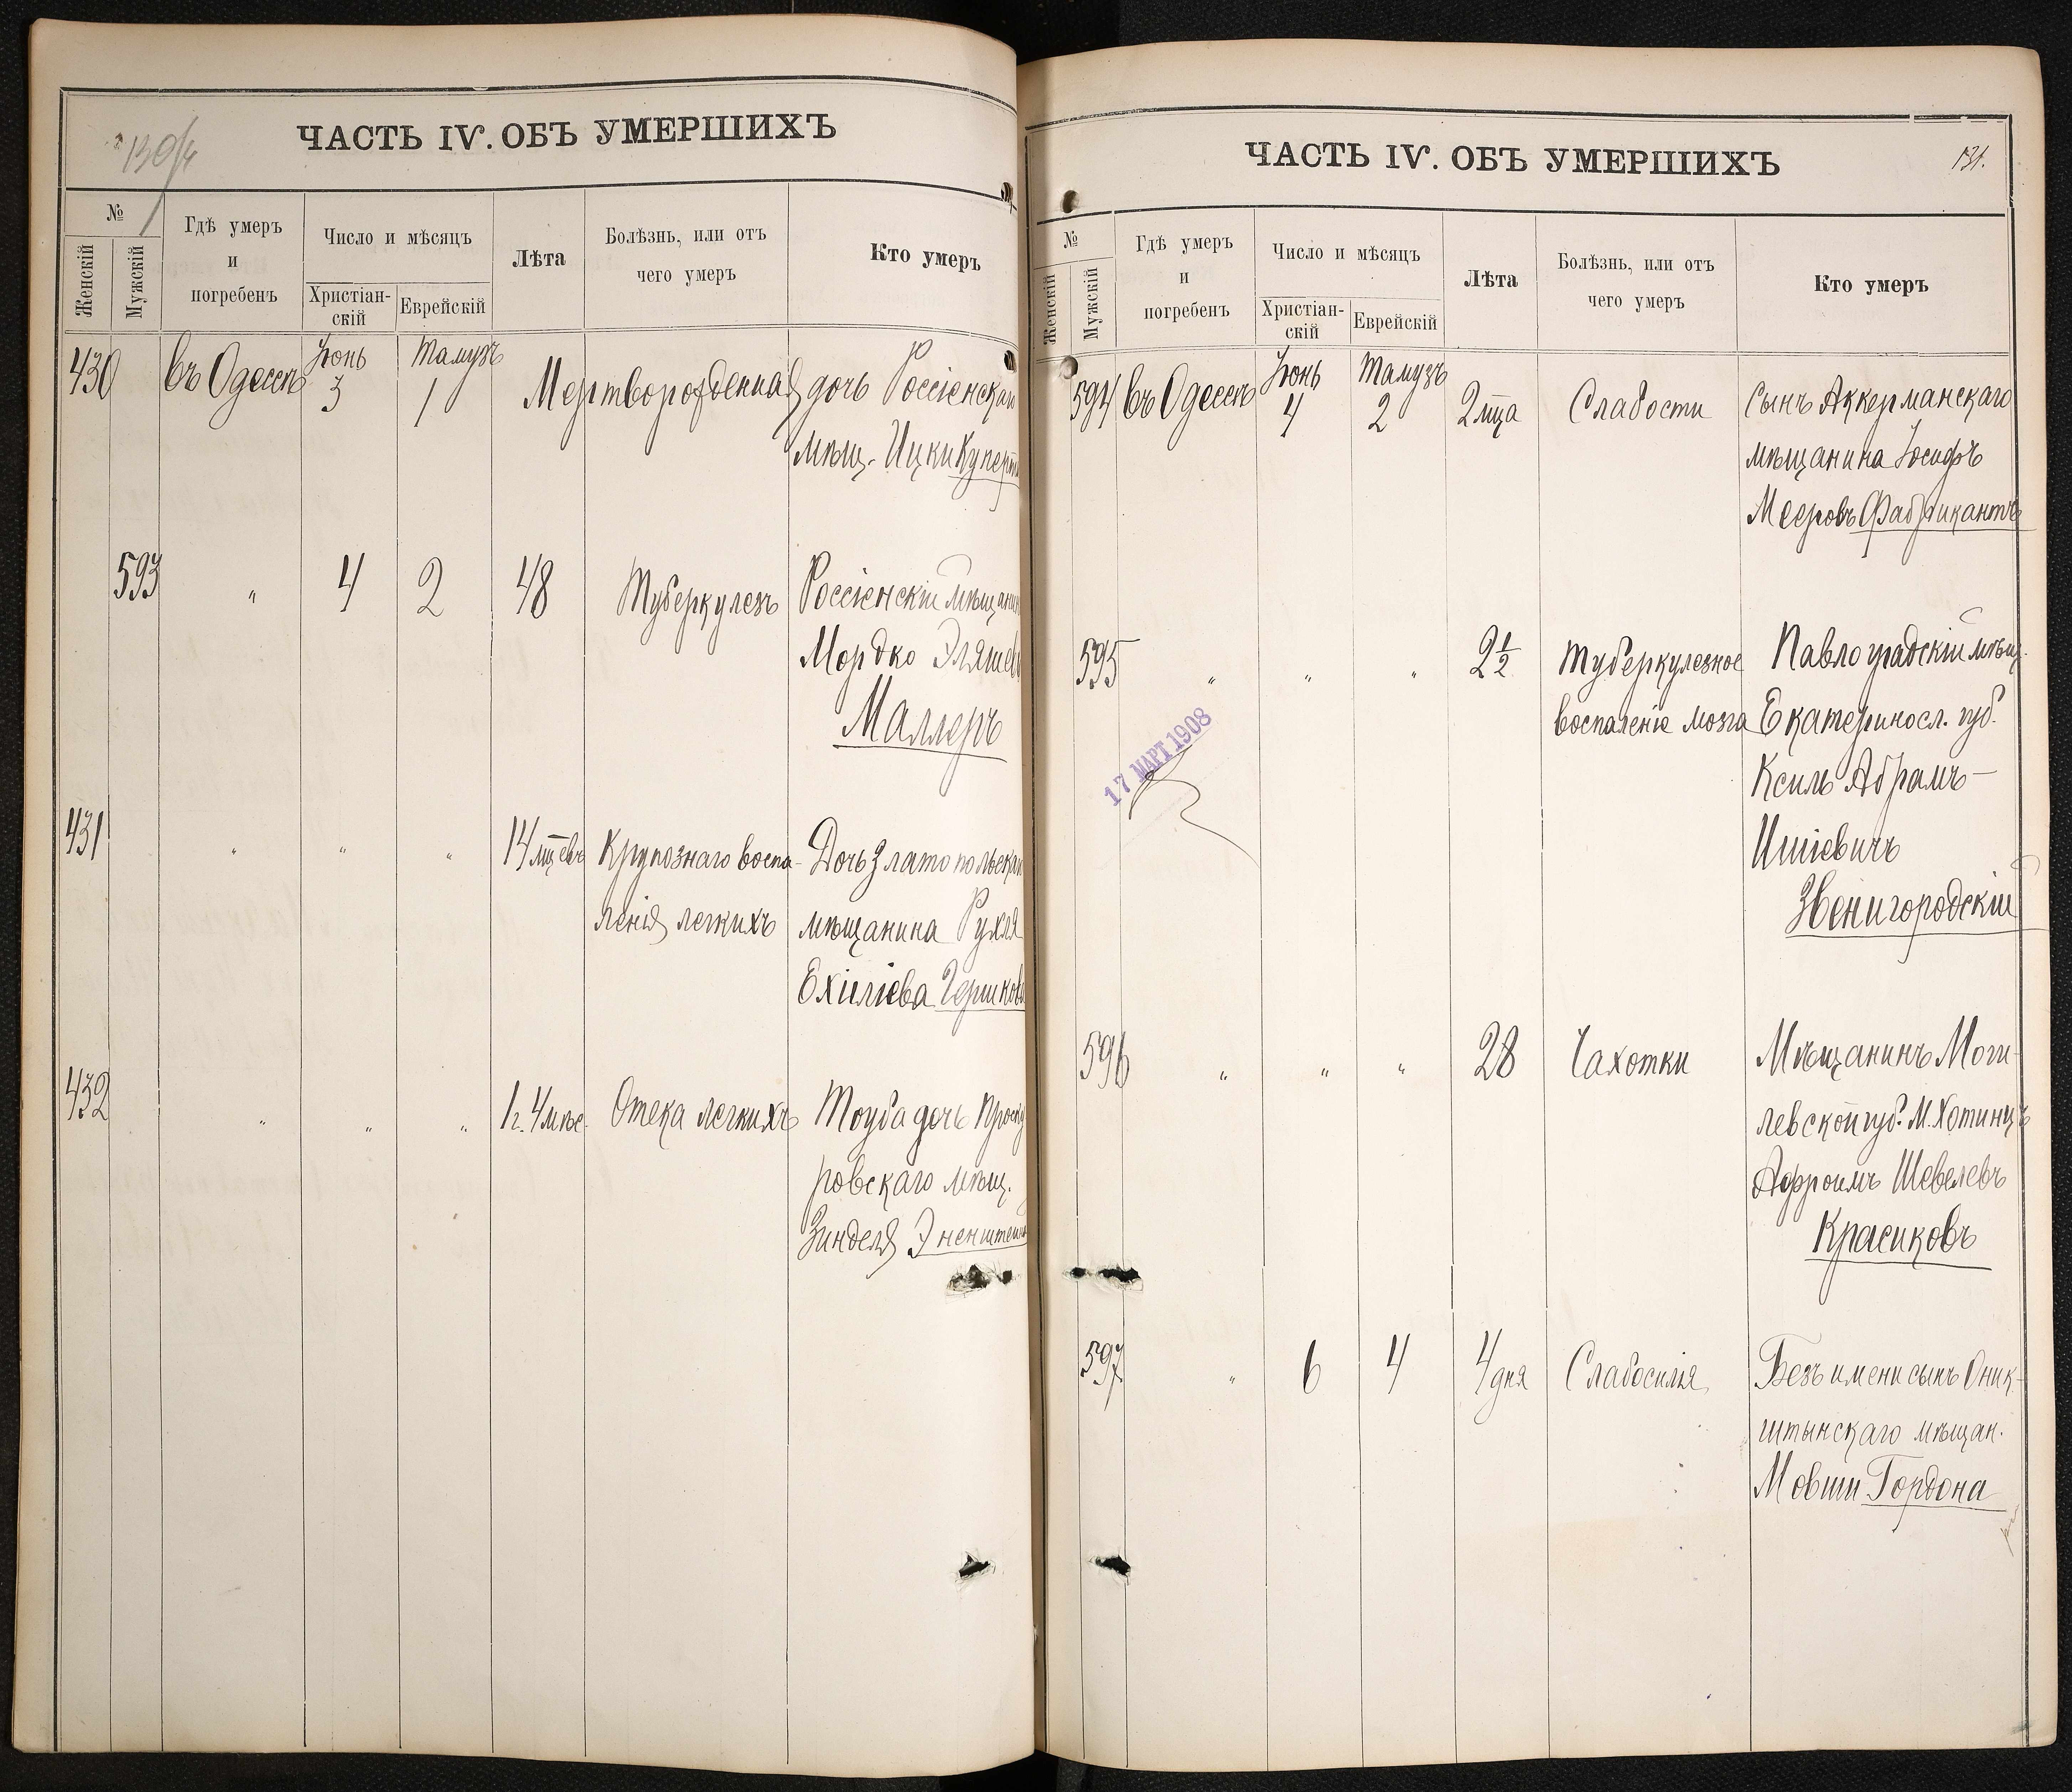 130/4
ЧАСТЬ IV. ОБЪ УМЕРШИХЪ
№
Женскій
Мужскій
Гдѣ умеръ
и
погребенъ
Число и мѣсяцъ
Христіан-
скій
Еврейскій
Лѣта
Болѣзнь, или отъ
чего умеръ
Кто умеръ
430 въ Одессѣ Іюнь 3 Тамузъ 1 Мертворожденная дочь
мѣщ. Ицки
593 " 4 2 48 Туберкулезъ Россіенскій
Мордко
Маллеръ
431 " " " 14 мцевъ Крупознаго воспа- Дочь Златопольскаго
ленія легкихъ мѣщанина Рухля
Ехиліева
432 " " " 1 г. 4 мѣс. Отека легкихъ Тоуба дочь Проску
ровскаго мѣщ.
Зинделя
ЧАСТЬ IV. ОБЪ УМЕРШИХЪ
131.
№
Женскій
Мужскій
Гдѣ умеръ
и
погребенъ
Число и мѣсяцъ
Христіан-
скій
Еврейскій
Лѣта
Болѣзнь, или отъ
чего умеръ
Кто умеръ
594 въ Одессѣ Іюнь 4 Тамузъ 2 2 мца Слабости Сынъ Аккерманскаго
мѣщанина Іосифъ
Мееровъ Фабрикантъ
595 " " " 2 1/2 Туберкулезное Павлоградскій мѣщ.
воспаленіе мозга Екатериносл. губ.
Ксиль Абрамъ-
Звенигородскій
17 МАРТ 1908
596 " " " 28 Чахотки Мѣщанинъ Моги-
левской губ. М. Хотинцъ
Афроимъ Шевелевъ
Красиковъ
597 " 6 4 4 дня Слабосилія Безъ имени сынъ Оник-
штынскаго мѣщан.
Мовши Гордона